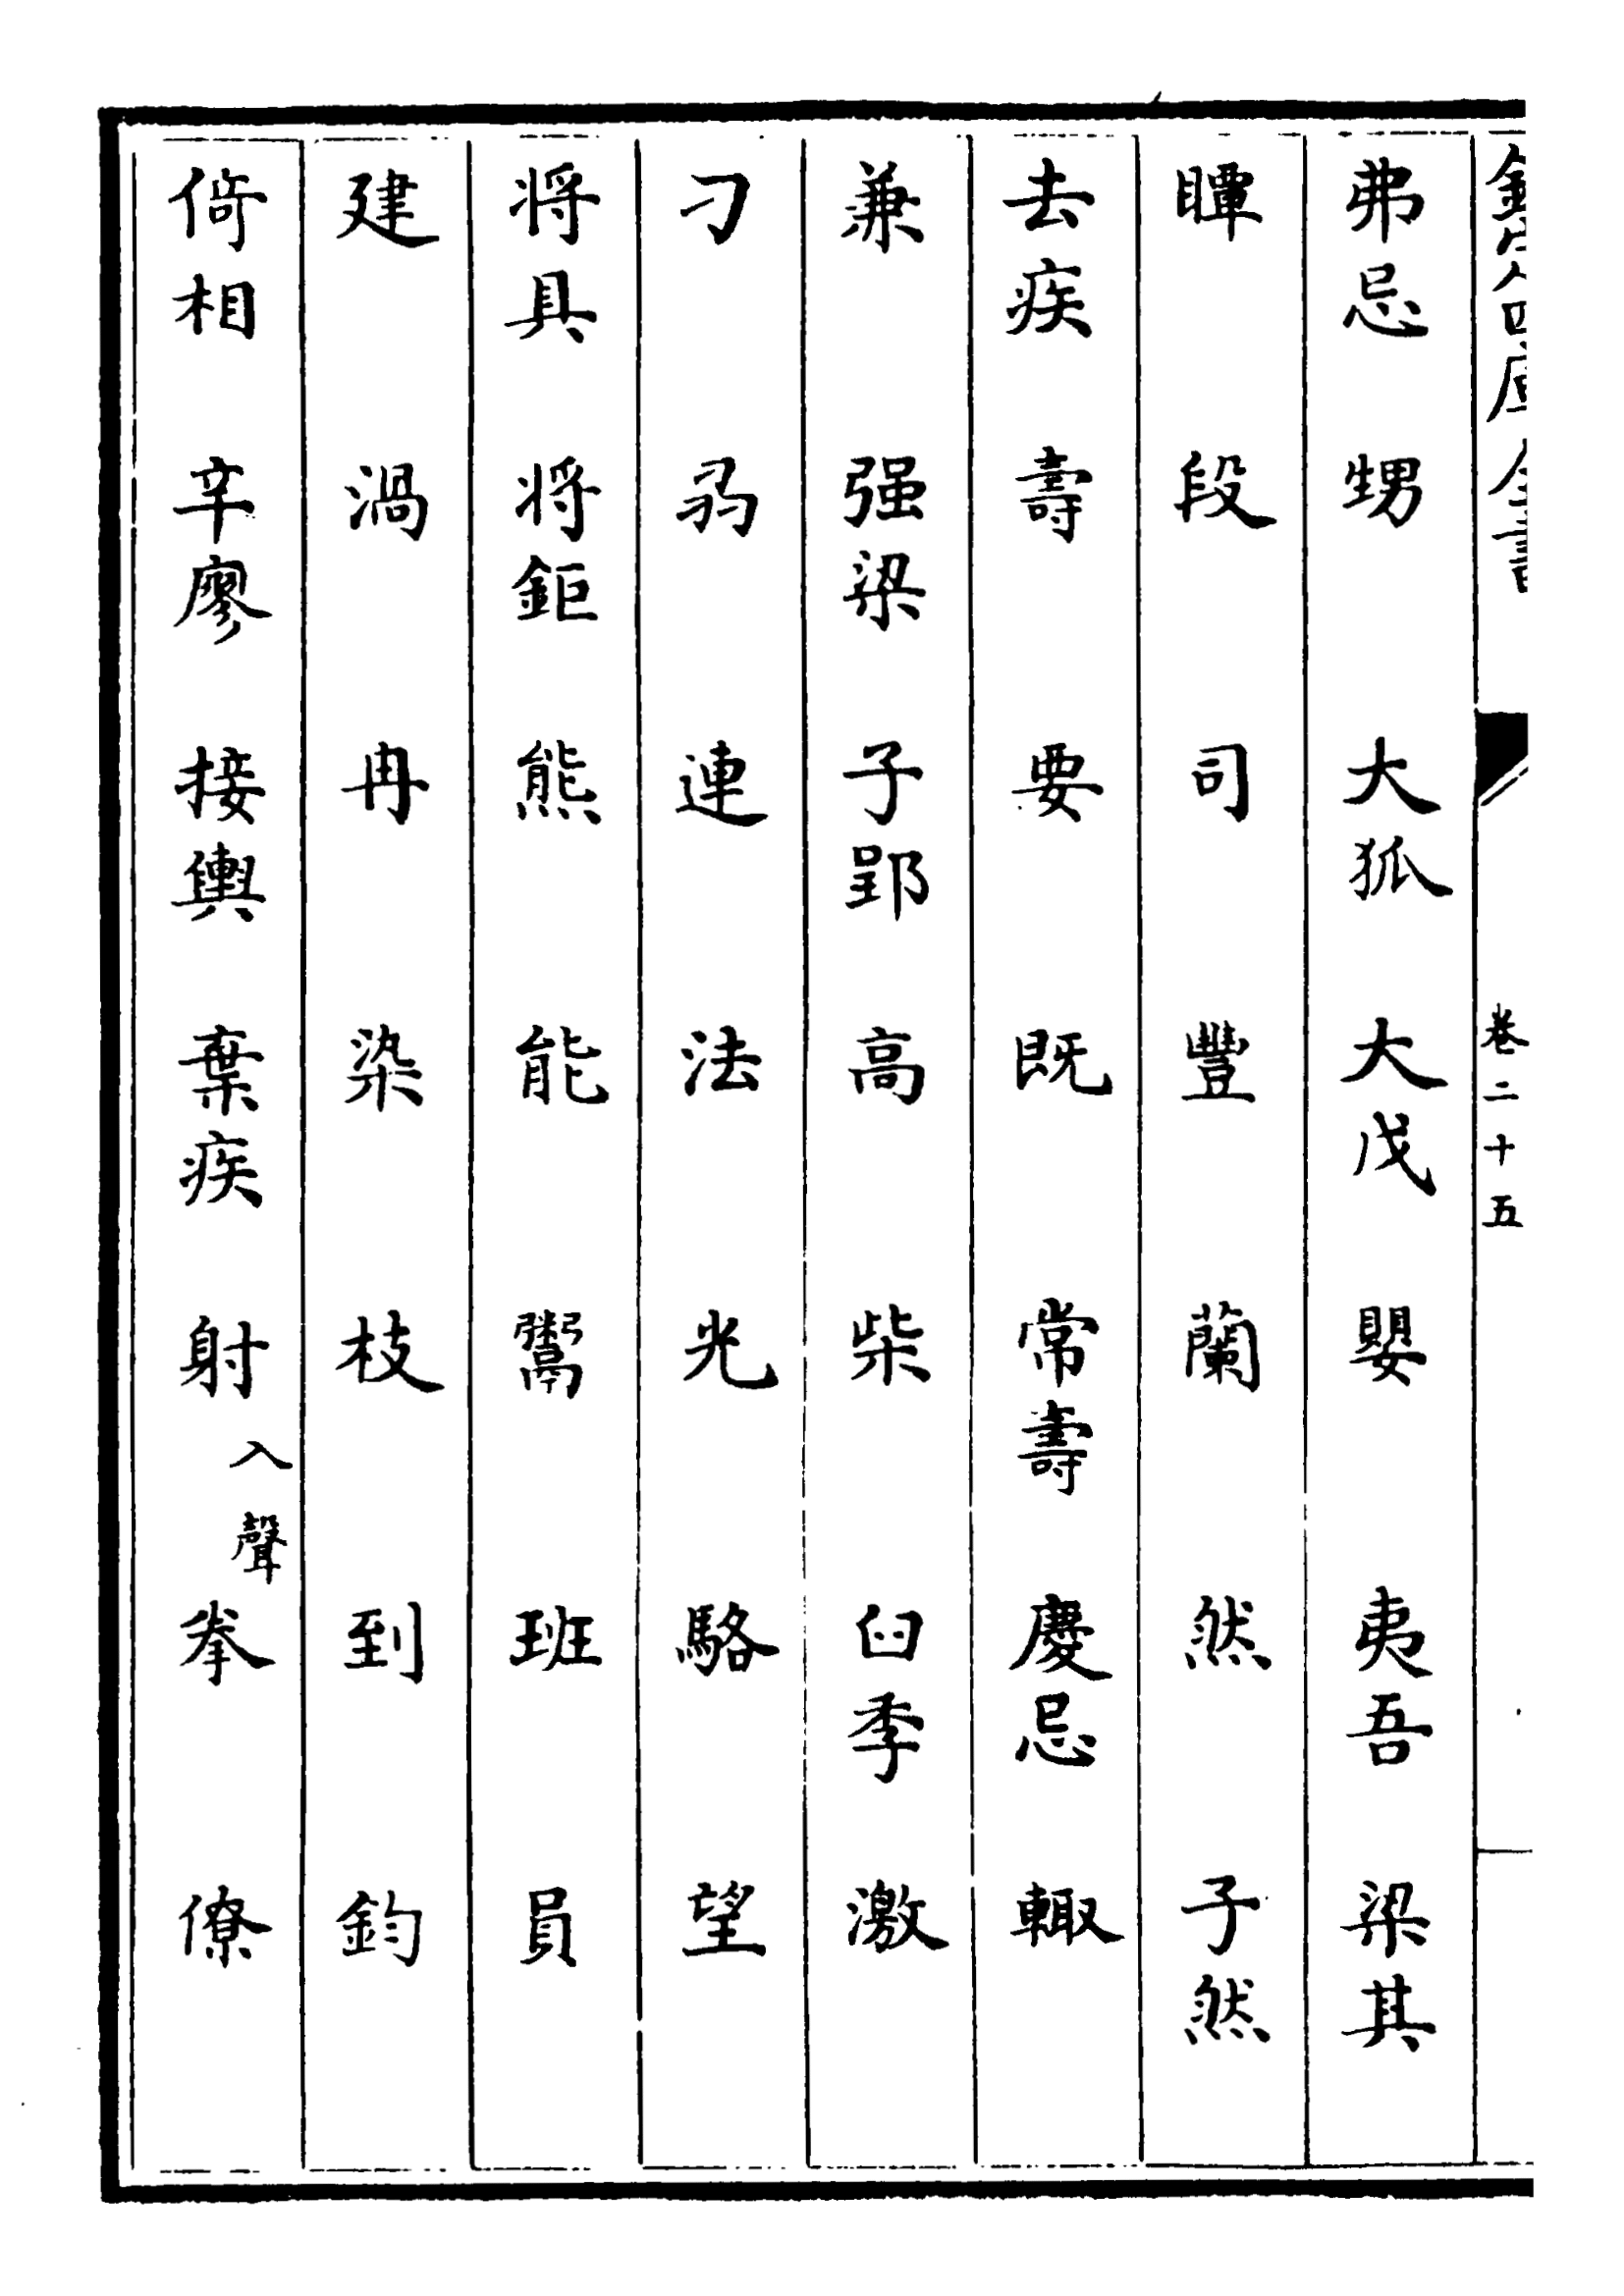 欽定四庫全書
卷二十五
弗忌 甥 大狐 大戊 嬰 夷吾 梁其
瞫 段 司 豐 蘭 然 子然
去疾 壽 要 既 常壽 慶忌 輙
兼 强梁 子郢 高 柴 臼季 激
刁 弱 連 法 光 駱 望
将具 将鉅 熊 能 鬻 班 員
建 渦 冉 染 枝 到 鈞
倚相 辛廖 接輿 棄疾 射入聲 拳 僚